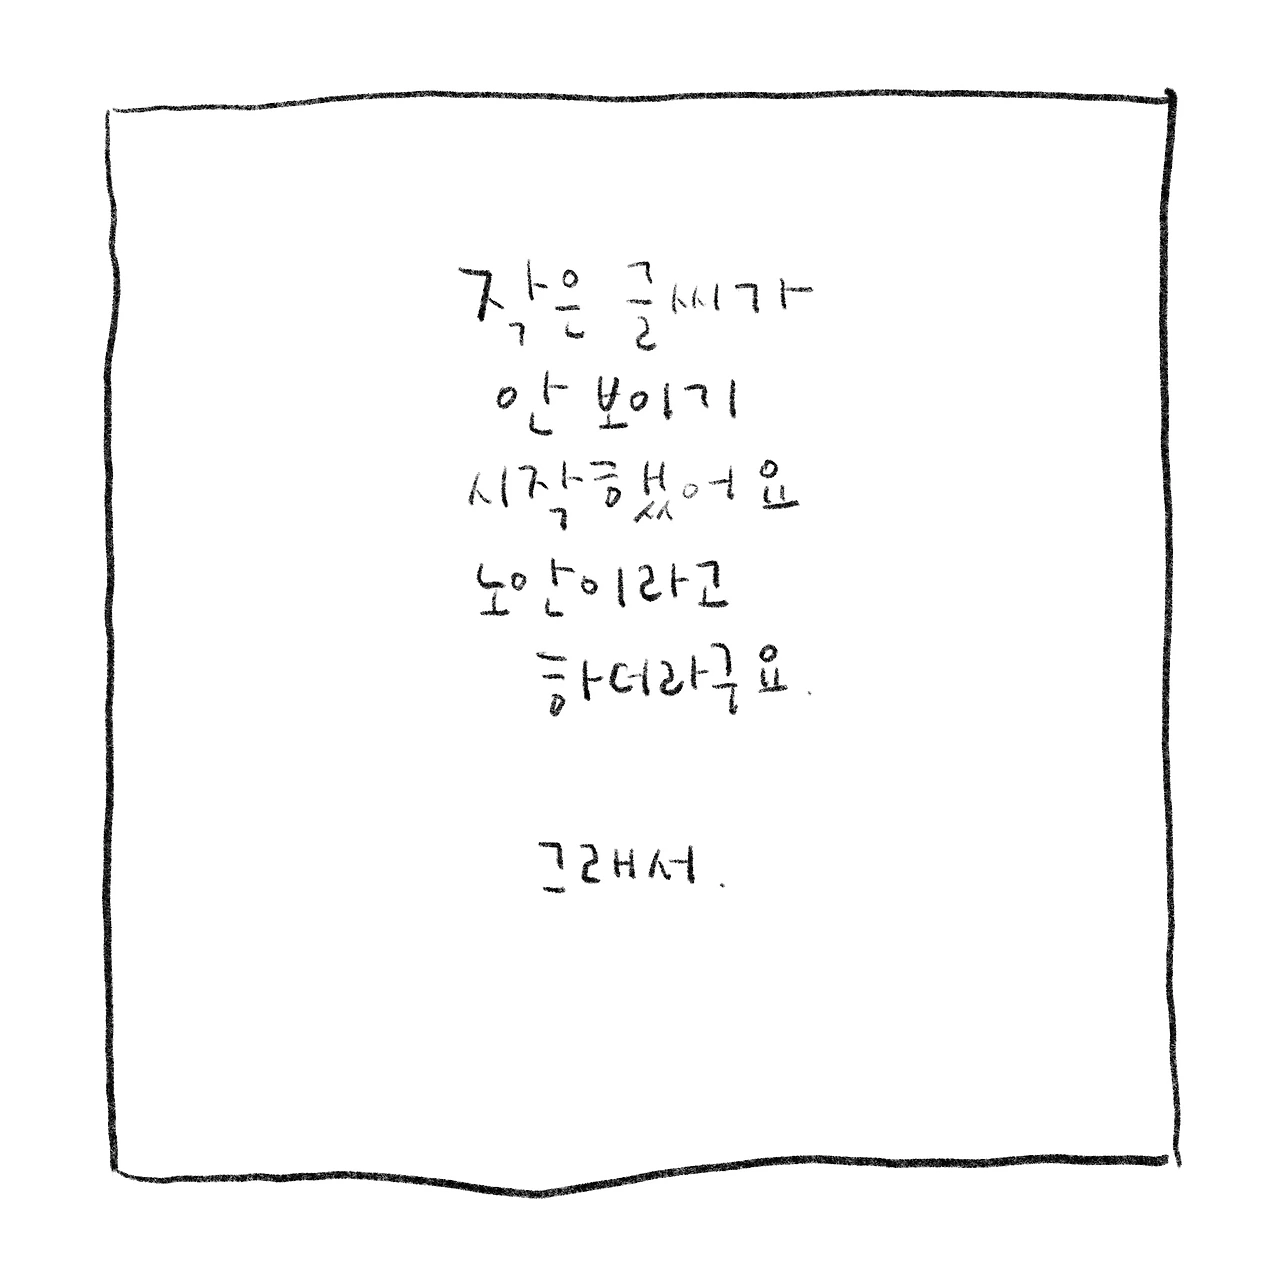 작은 글씨가
안 보이기
시작했어요
노안이라고
하더라구요.
그래서.